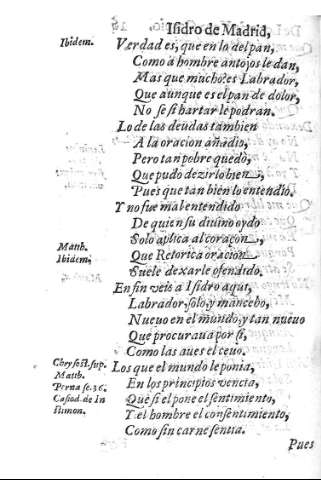 Isidro de Madrid,
Ibidem.
Verdad es, que en lo del pan,
Como a hombre antojos le dan,
Mas que mucho? es Labrador,
Que aunque es el pan de dolor,
No se si hartar le podran.
Lo de las deudas tambien
A la oracion añadio,
Pero tan pobre quedò,
Que pudo dezirlo bien,
Pues que tan bien lo entendio.
Y no fue mal entendido
De quien su diuino oydo
Solo aplica al coraçon,
Matth.
Ibidem,
Que Retorica oracion
Suele dexarle ofendido.
En fin veis a Isidro aqui,
Labrador, solo, y mancebo,
Nueuo en el mundo, y tan nueuo
Que procuraua por si,
Como las aues el ceuo.
Chrysost. sup.
Matth.
Perna se. 36.
Casiod. de In
Los que el mundo le ponia,
En los principios vencia,
Que si el pone el sentimiento,
Y el hombre el consentimiento,
Como sin carne sentia.
Pues